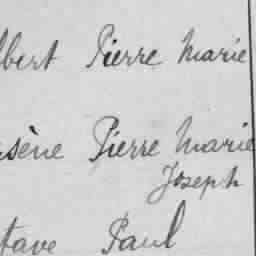 lbert Pierre Marie
sène Pierre Marie
Joseph
tave Paul